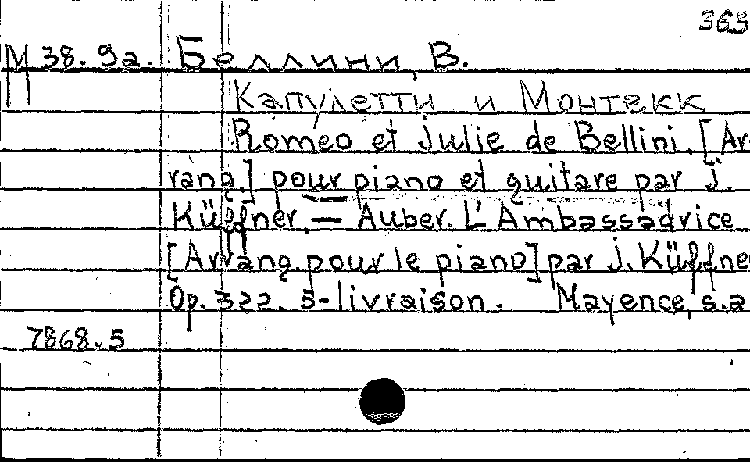 365
М 38. 9а. Беллини, В.
П Капулетти и Монтекк
Romeo et Julie de Bellini. [Ar-
rang.] pour piano et guitare par J.
Küffner. — Auber. L'Ambassadrice
[Arrang. pour le piano] par J. Küffne
Op. 322. 5-livraison. Mayence, s.a
7868.5